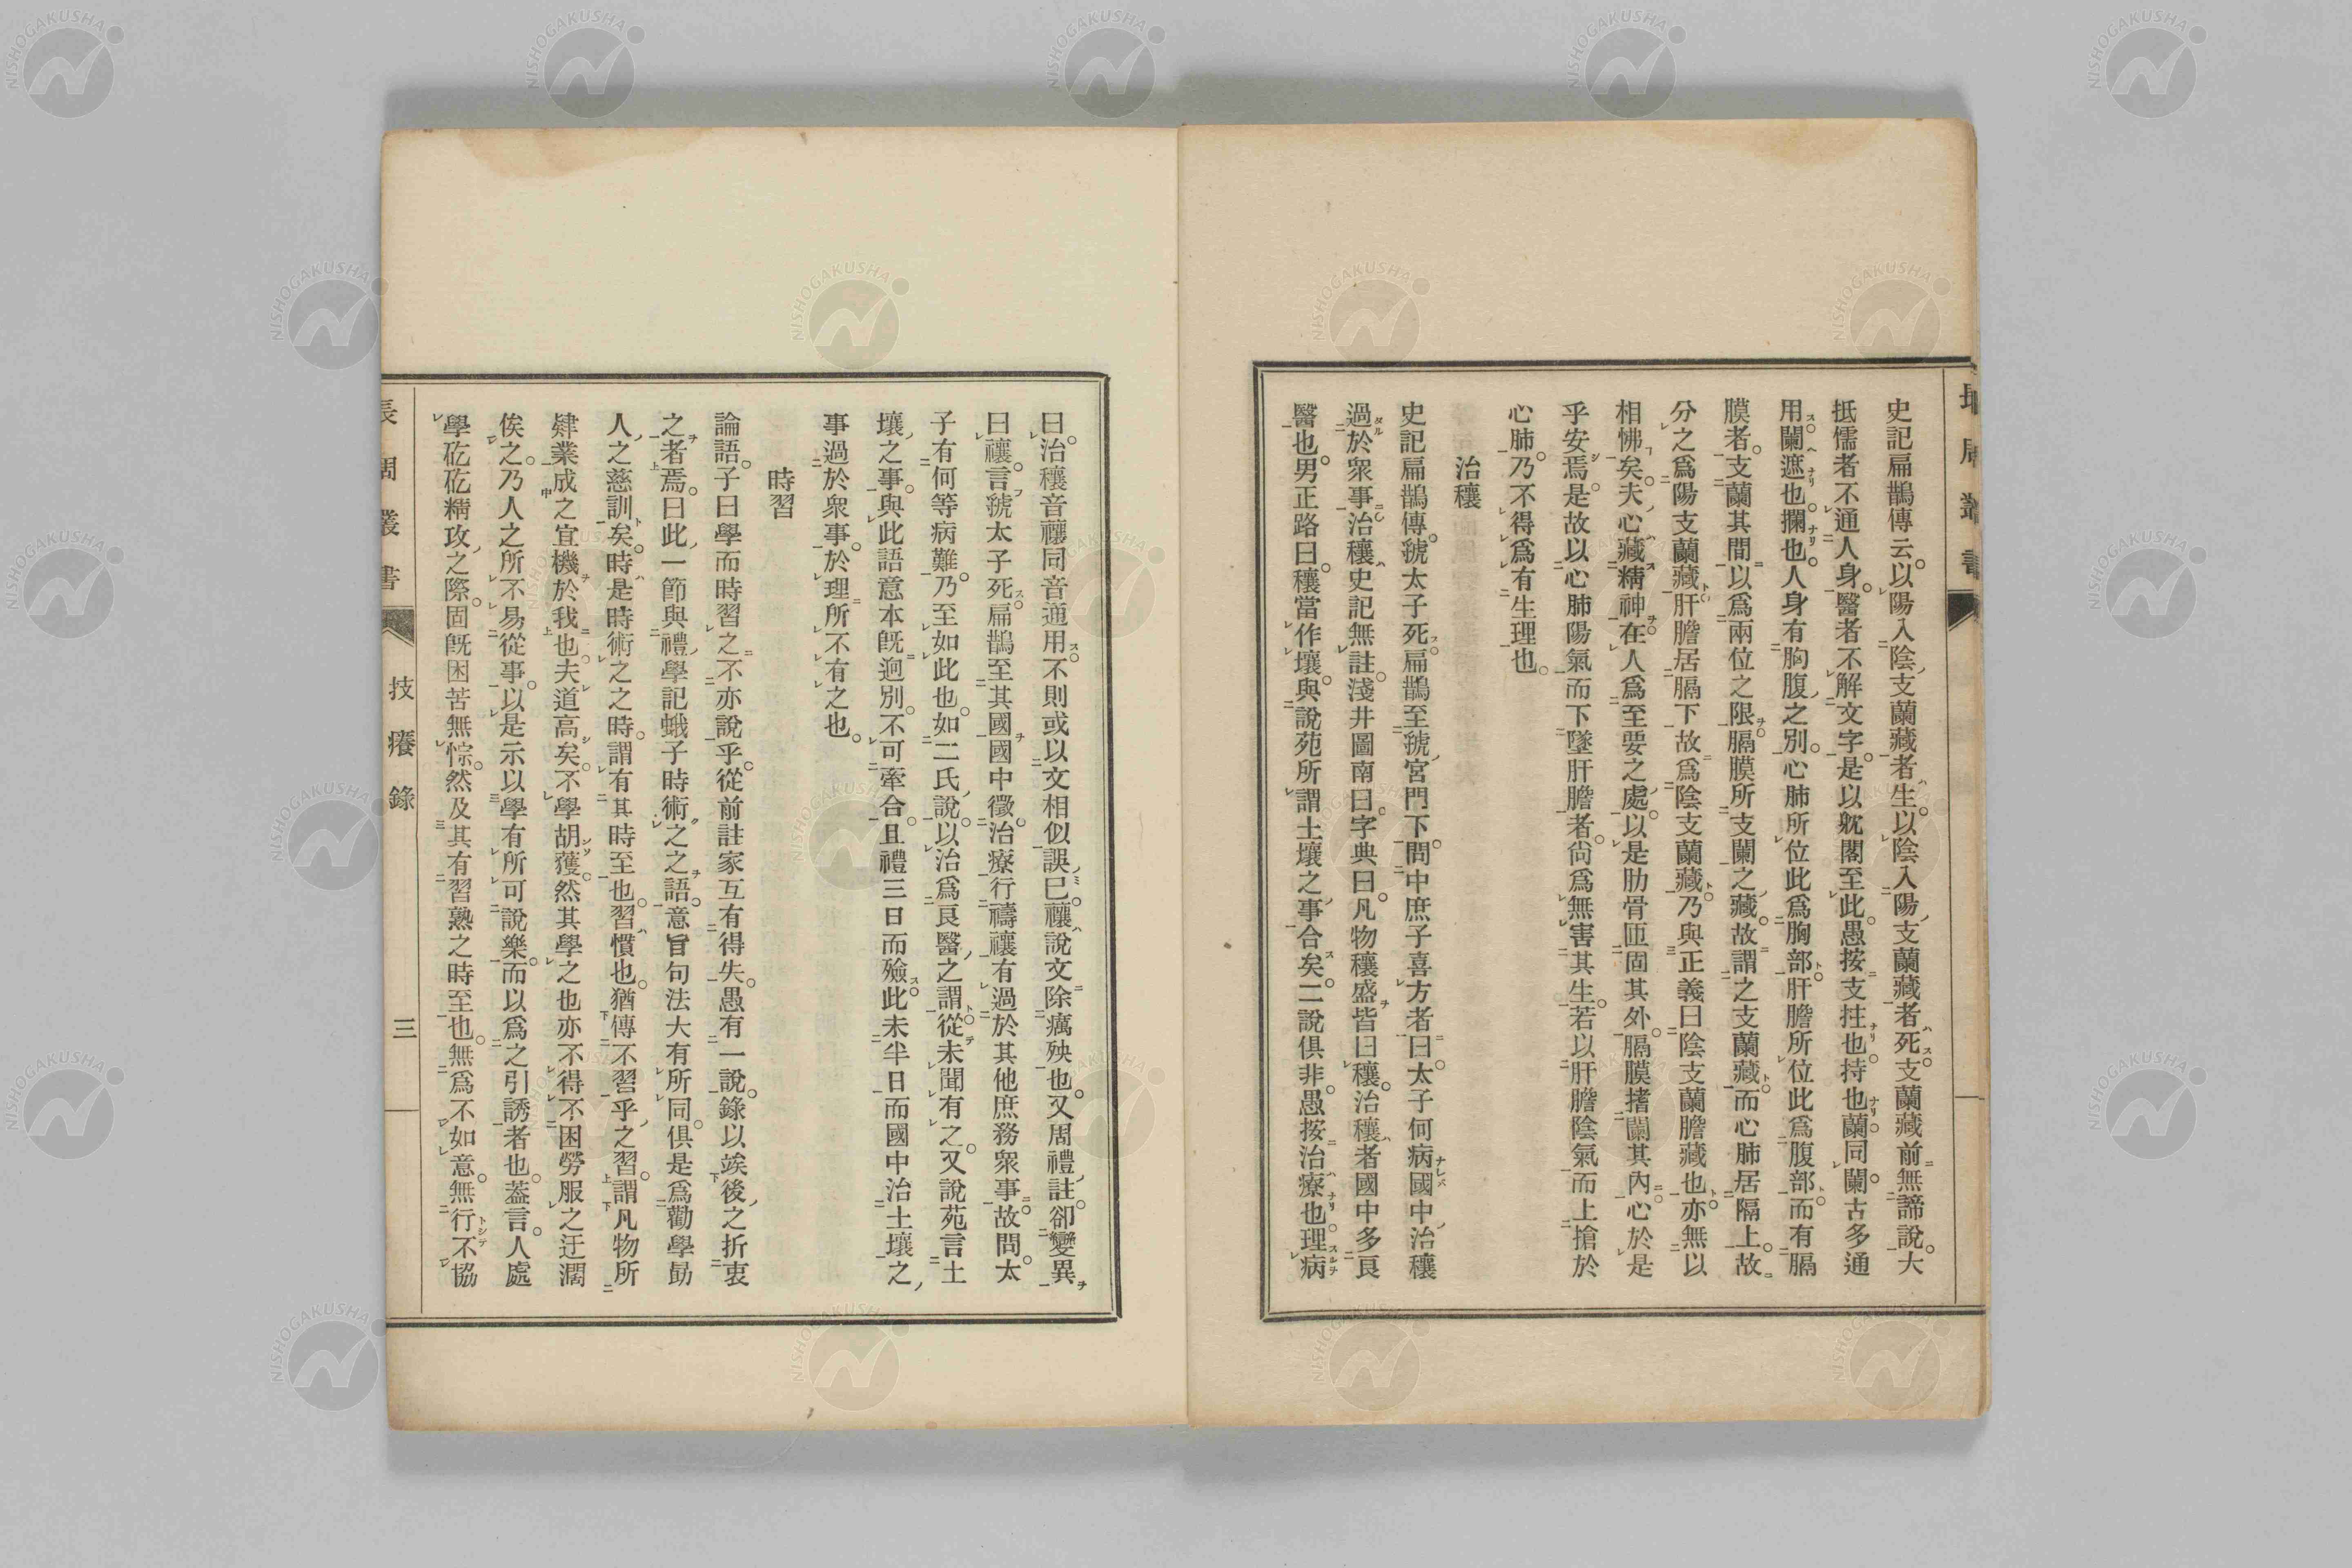 史記扁鵲傳云。以陽入陰支蘭藏者生。以陰入陽支蘭藏者死。支蘭藏前無諦說。大
抵儒者不通人身。醫者不解文字。是以躭閣至此。愚按支拄也。持也。蘭同闌。古多通
用。闌遮也。攔也。人身有胸腹之別。心肺所位此爲胸部。肝膽所位此爲腹部。而有膈
膜者。支蘭其間。以爲兩位之限。膈膜所支闌之藏。故謂之支蘭藏。而心肺居隔上。故
分之爲陽支蘭藏。肝膽居膈下。故爲陰支蘭藏。乃與正義曰陰支蘭膽藏也。亦無以
相怫矣。夫心藏精神。在人爲至要之處。以是肋骨匝固其外。膈膜撦闌其內。心於是
乎安焉。是故以心肺陽氣而下墜肝膽者。尙爲無害其生。若以肝膽陰氣而上搶於
心肺。乃不得爲有生理也。
治穰
史記扁鵲傳。虢太子死。扁鵲至虢宮門下。問中庶子喜方者曰。太子何病。國中治穰
過於衆事。治穰史記無註。淺井圖南曰。字典曰。凡物穰盛皆曰穰。治穰者國中多良
醫也。男正路曰。穰當作壤。與說苑所謂土壤之事合矣。二說俱非。愚按治療也。理病
曰。治穰音禳同音通用。不則或以文相似誤已。禳說文除癘殃也。又周禮註。卻變異
曰禳。言虢太子死。扁鵲至其國。國中徵治療行禱禳有過於其他庶務衆事。故問太
子有何等病難。乃至如此也。如二氏說。以治爲良醫之謂。從未聞有之。又說苑言土
壤之事。與此語意本旣迥別。不可牽合。且禮三日而殮。此未半日而國中治土壤之
事過於衆事。於理所不有之也。
時習
論語。子曰學而時習之。不亦說乎。從前註家互有得失。愚有一說。錄以竢後之折衷
之者焉。曰此一節與禮學記蛾子時術之之語。意旨句法大有所同。俱是爲勸學勖
人之慈訓矣。時是時術之之時。謂有其時至也。習慣也。猶傳不習乎之習。謂凡物所
肄業成之宜機於我也。夫道高矣。不學胡獲。然其學之也亦不得不困勞服之迂濶
俟之。乃人之所不易從事。以是示以學有所可說樂。而以爲之引誘者也。葢言。人處
學矻矻精攻之際。固旣困苦無悰。然及其有習熟之時至也。無爲不如意。無行不協
長周叢書
技癢錄
三